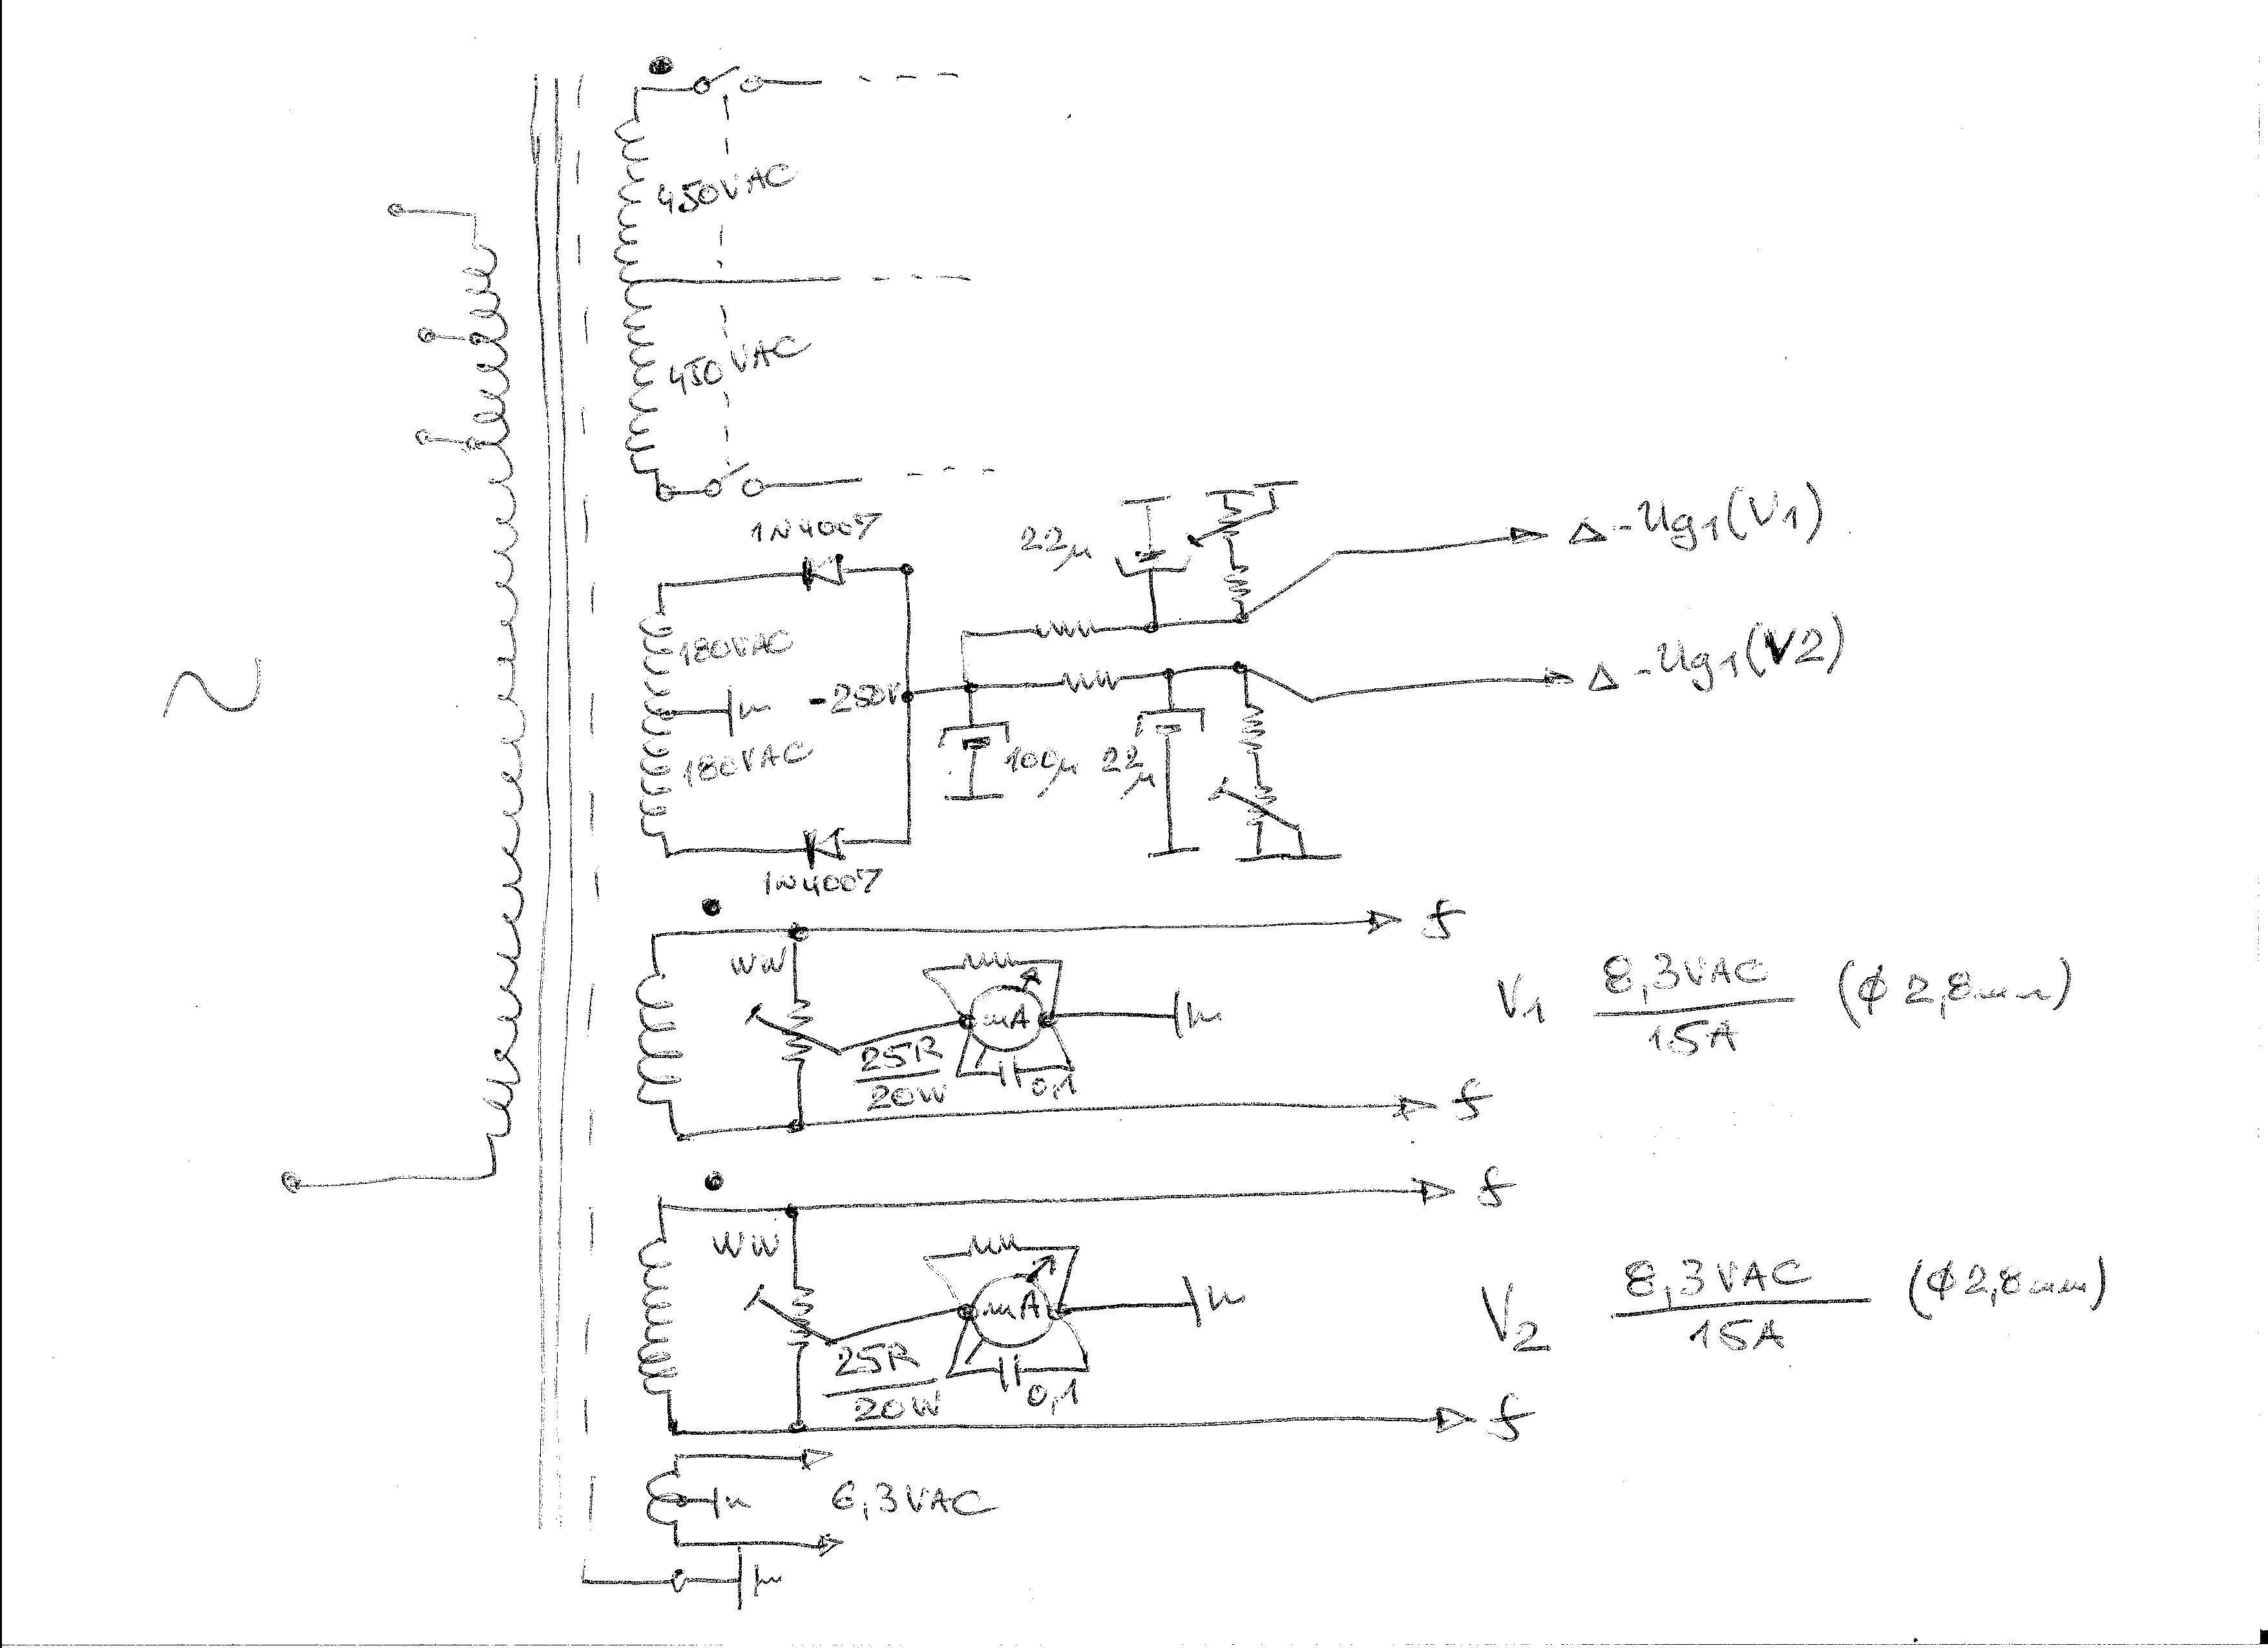 450VAC
450VAC
1N4007
22µ
-Ug1(V1)
180VAC
-250V
-Ug1(V2)
180VAC
100µ
22µ
1N4007
f
WW
mA
V1 8,3VAC
15A
(ϕ2,8mm)
25R
20W
0,1
f
f
WW
mA
V2 8,3VAC
15A
(ϕ2,8mm)
25R
20W
0,1
f
6,3VAC